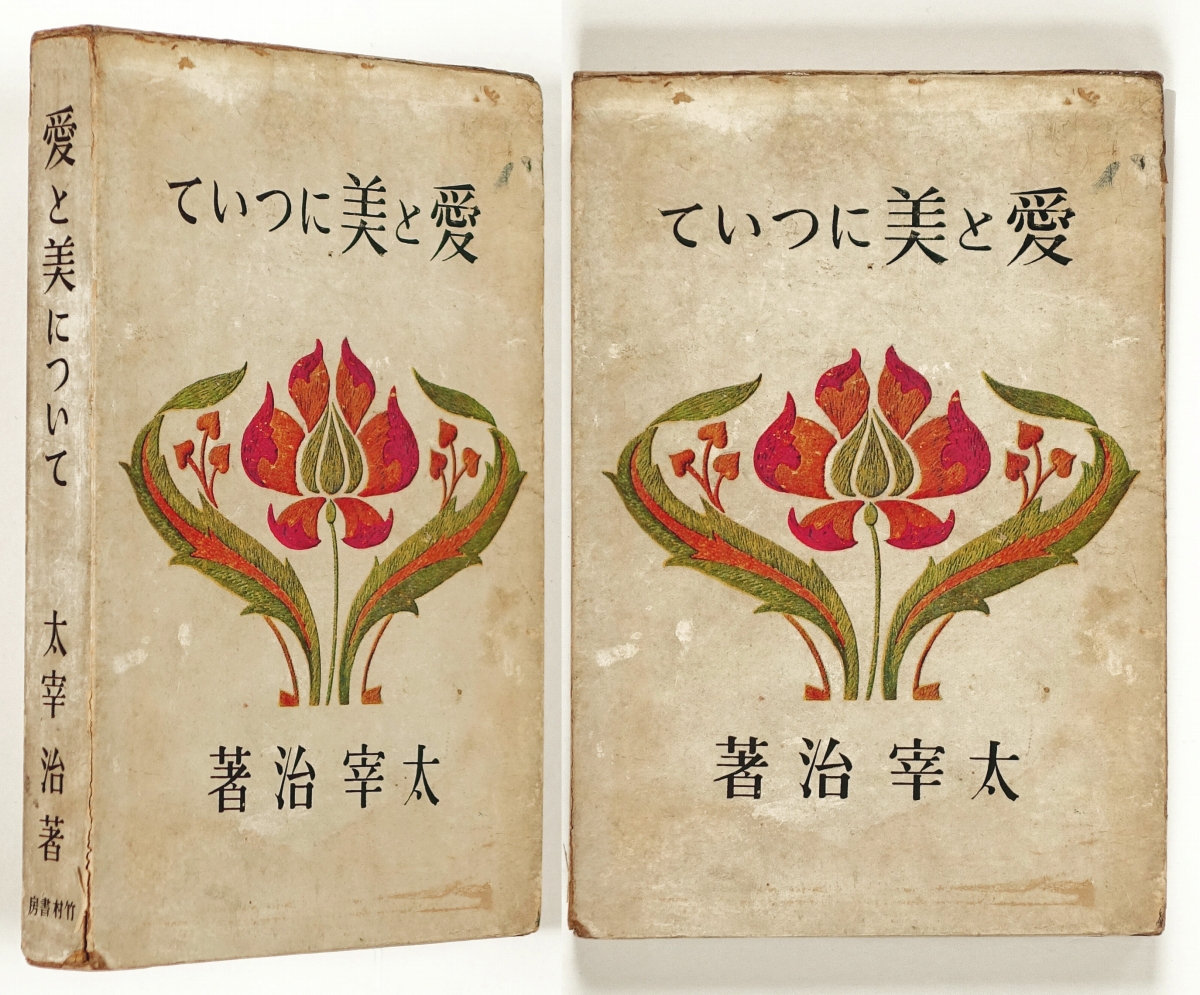 愛と美について
太宰治著
竹村書房
愛と美について
太宰治著
愛と美について
太宰治著